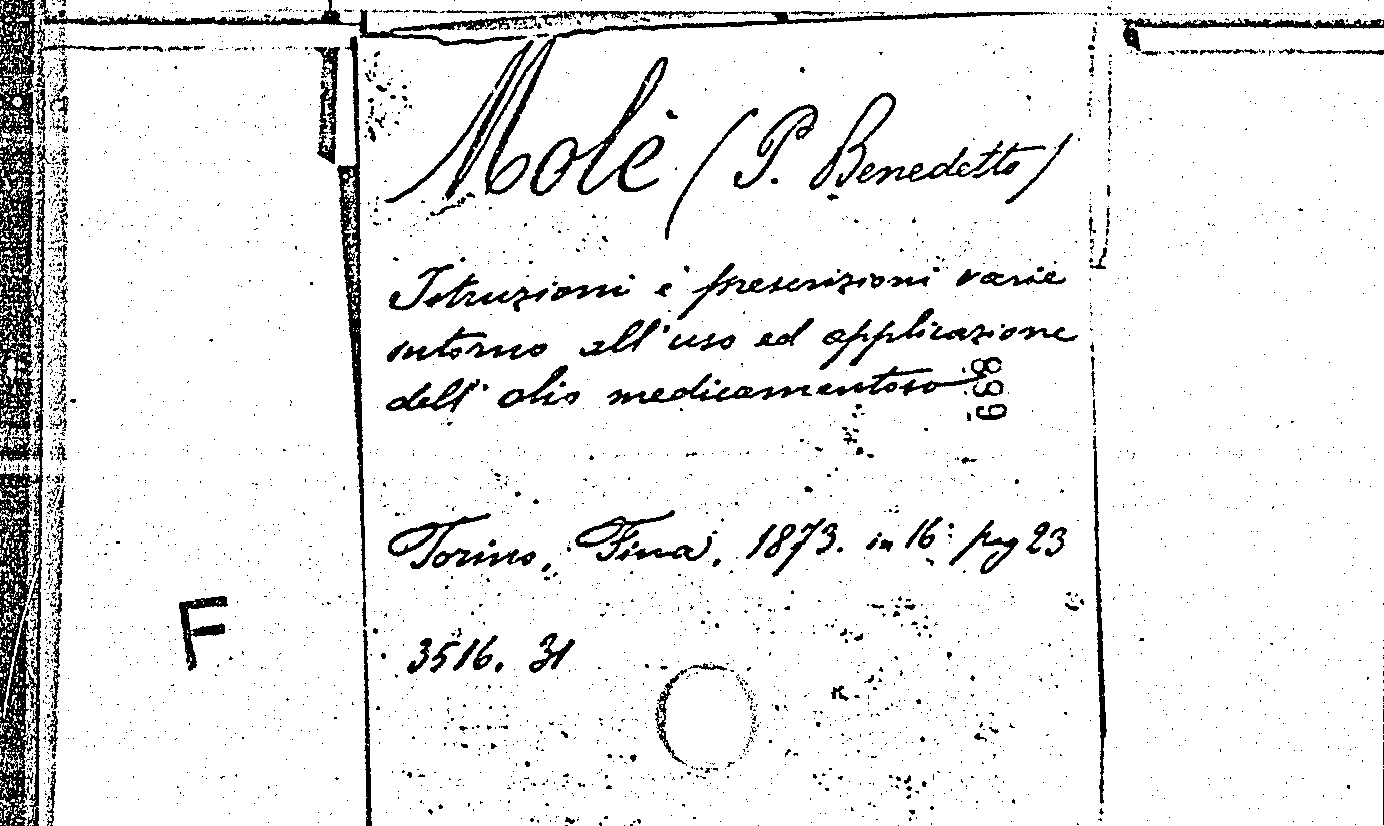 Molè (P. Benedetto)
Istruzioni e prescrizioni varie
intorno all'uso ed applicazione
dell'olio medicamentoso
899
Torino, Fina, 1873. in 16: pag 23
F
3516. 31